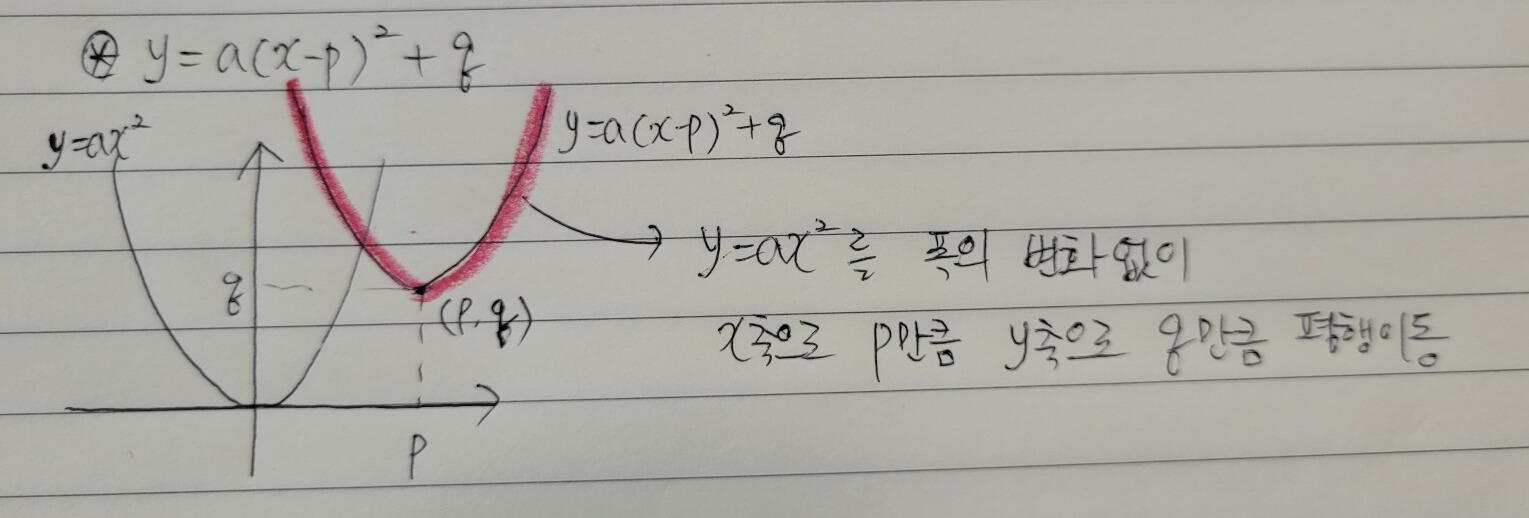 ⊛ y=a(x-p)²+q
y=ax²
y=a(x-p)²+q
→ y=ax²를 폭의 변화 없이
q
(p, q)
x축으로 p만큼 y축으로 q만큼 평행이동
p